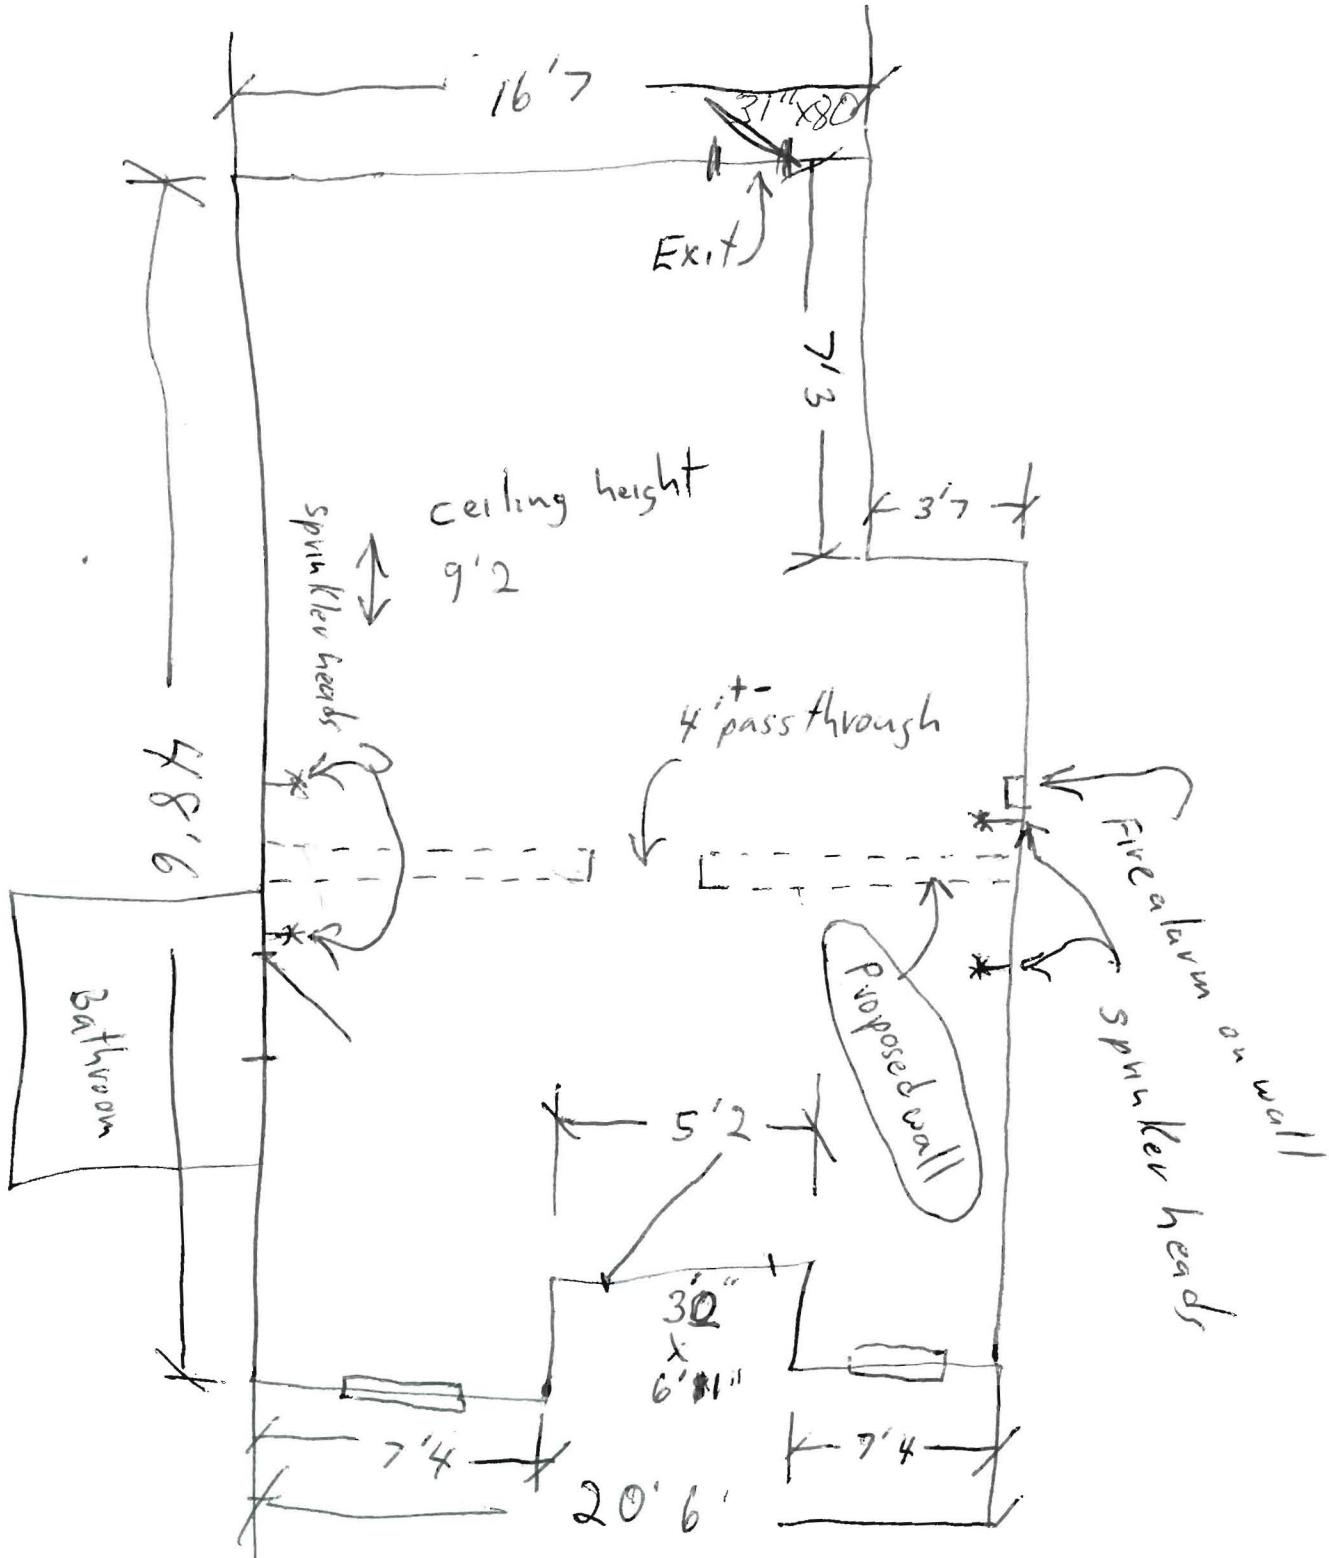 16'7
31"x80
Exit
7'3
3'7
ceiling height
9'2
sprinkler heads
4' +- pass through
48'6
Fire alarm on wall
sprinkler heads
Proposed wall
Bathroom
5'2
3'0"
x
6'
7'4
7'4
20'6'